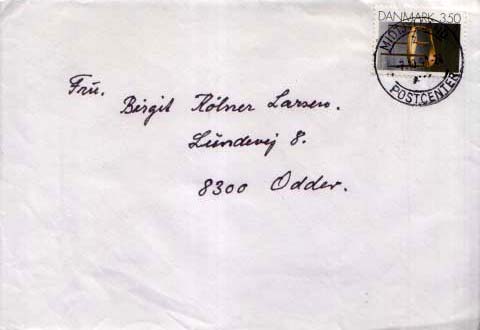 DANMARK 3.50
POSTCENTER
Fru.
Birgit Rölner Larsen.
Lundevej 8.
8300 Odder.